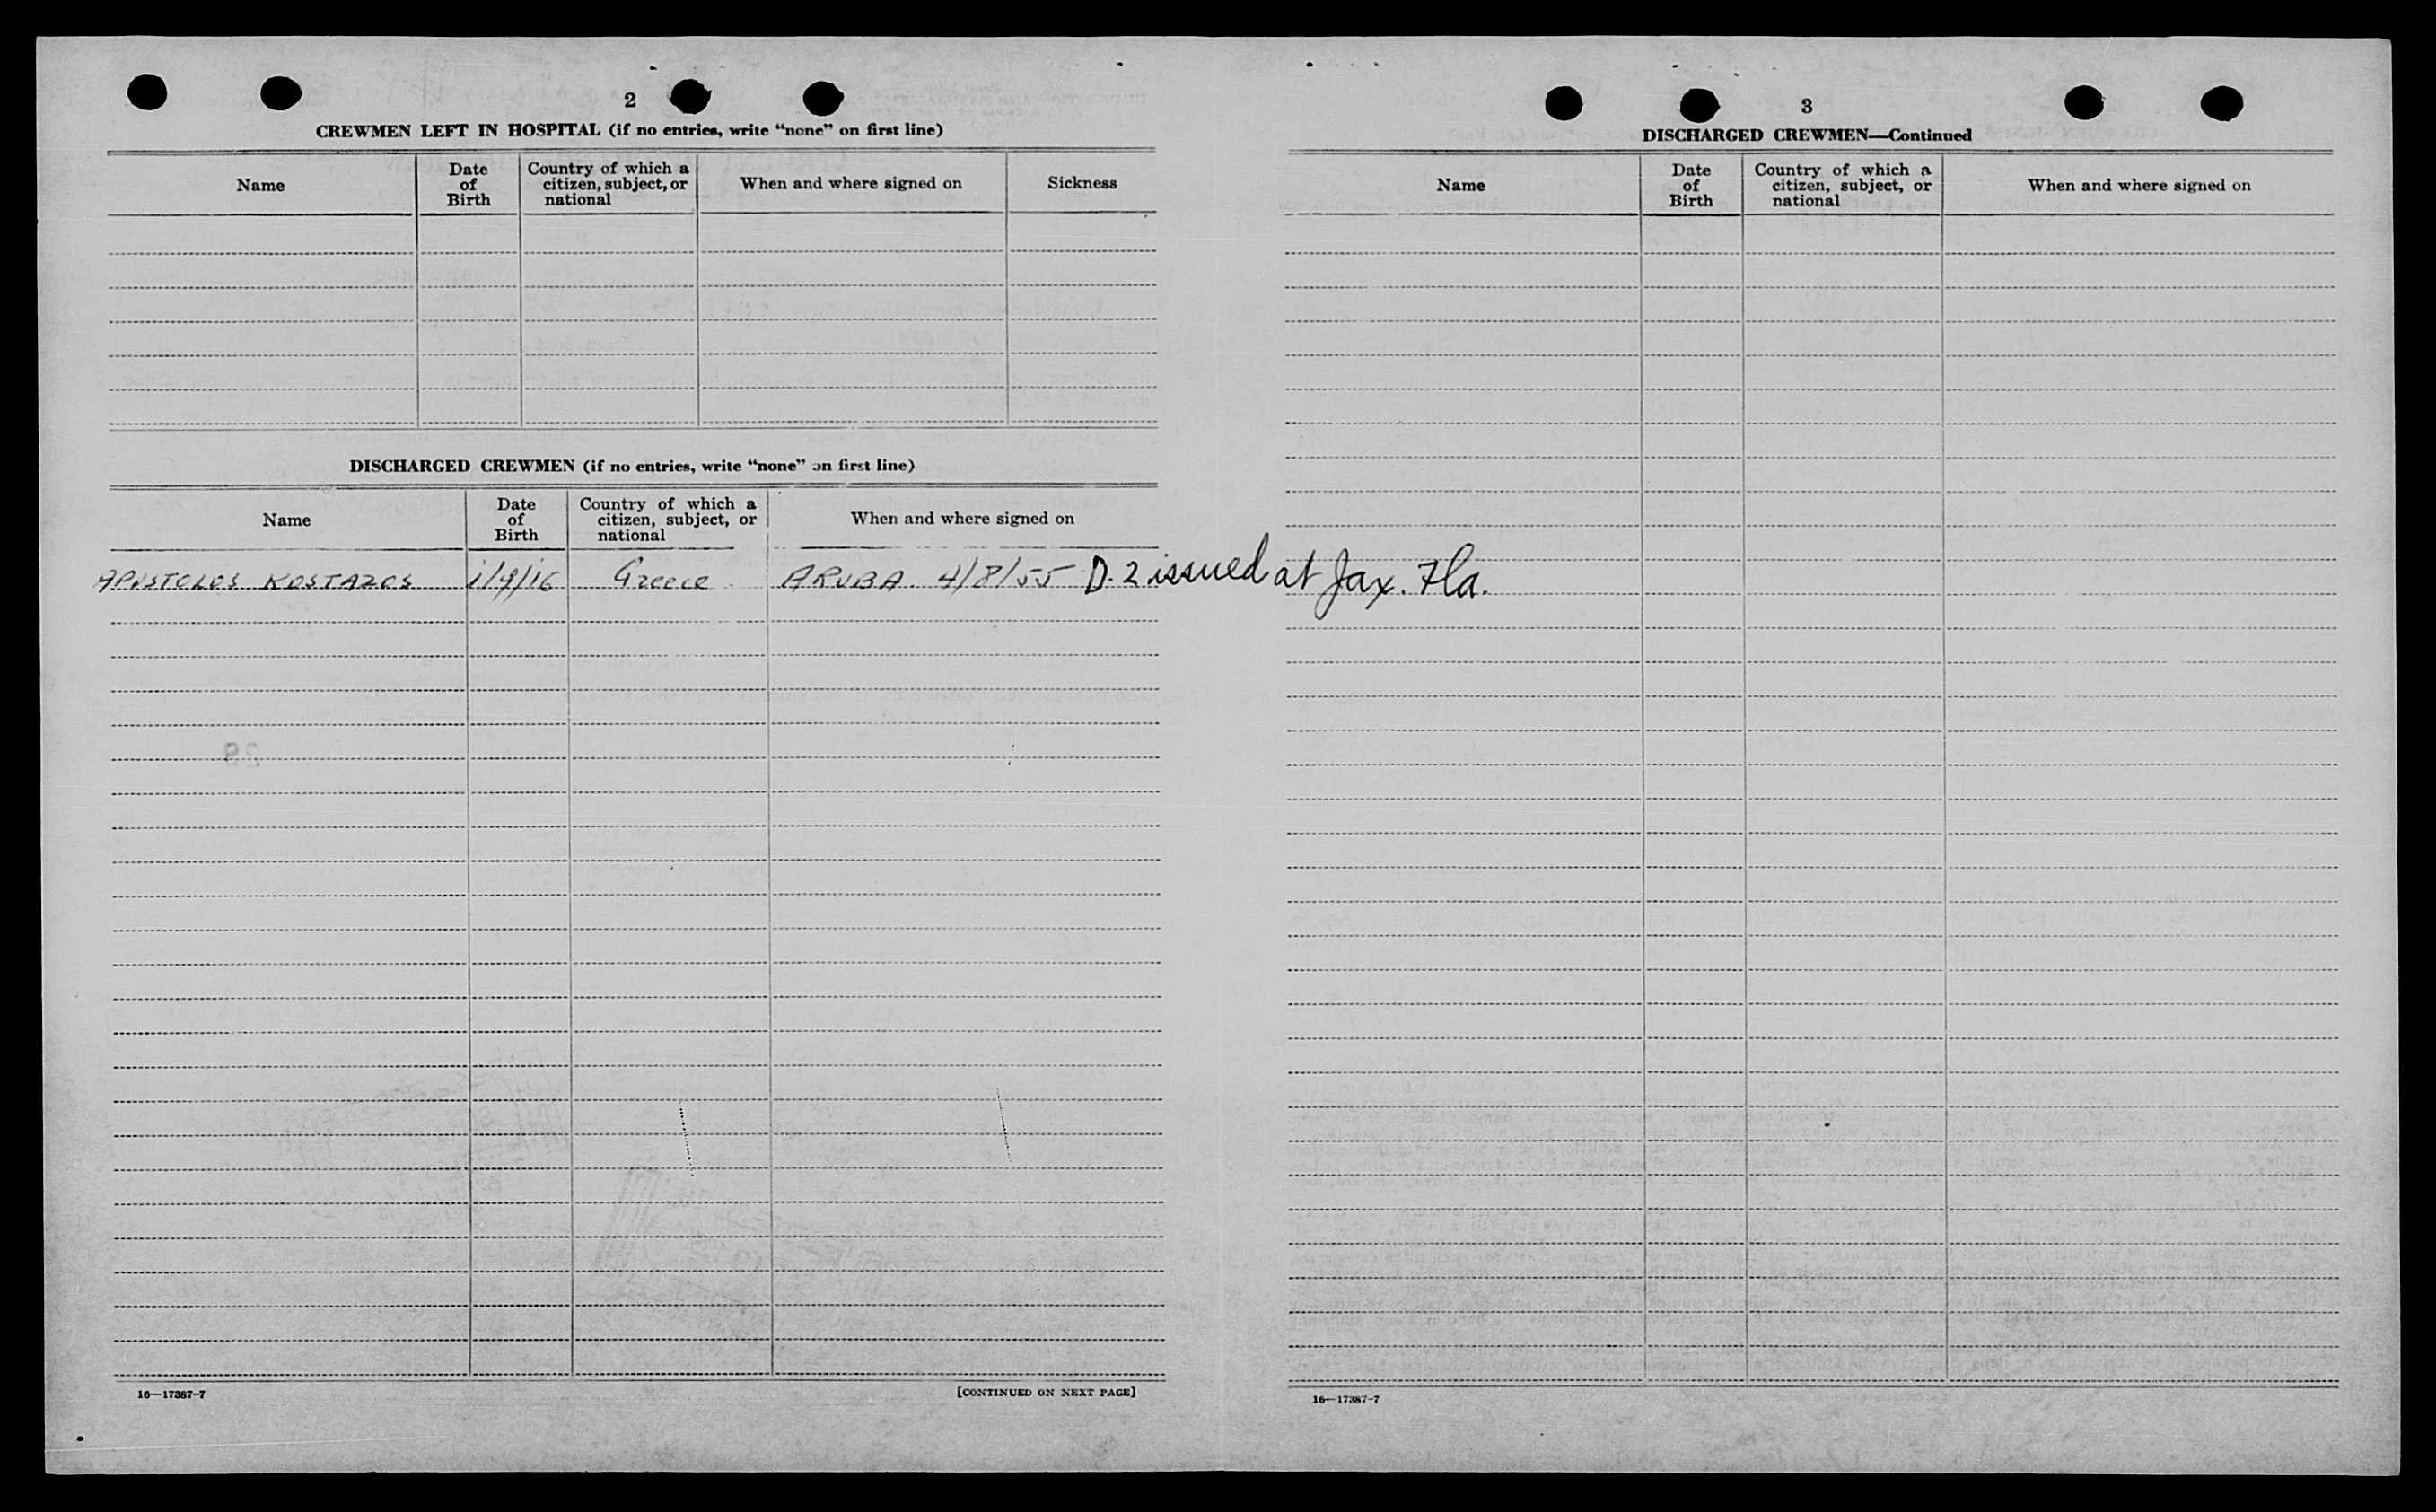 2
CREWMEN LEFT IN HOSPITAL (if no entries, write "none" on first line)
Name
Date of Birth
Country of which a citizen, subject, or national
When and where signed on
Sickness
DISCHARGED CREWMEN (if no entries, write "none" on first line)
Name
Date of Birth
Country of which a citizen, subject, or national
When and where signed on
APOSTOLOS KOSTAZOS 1/9/16 Greece ARUBA 4/8/55 D.2 issued at Jax. Fla.
16—17387-7
[CONTINUED ON NEXT PAGE]
3
DISCHARGED CREWMEN—Continued
Name
Date of Birth
Country of which a citizen, subject, or national
When and where signed on
16—17387-7